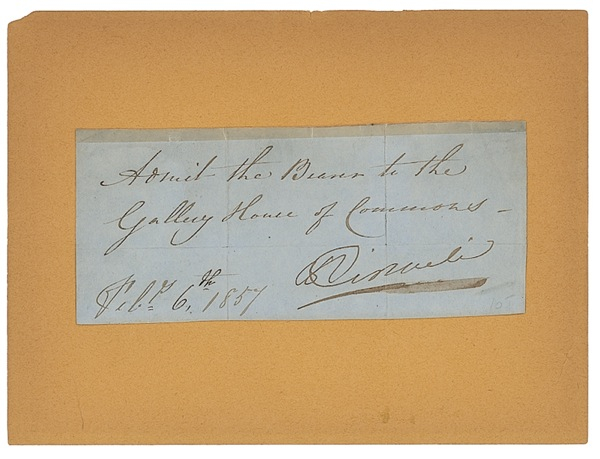 Admit the Bearer to the
Gallery House of Commons -
Disraeli
Feby. 6th. 1857